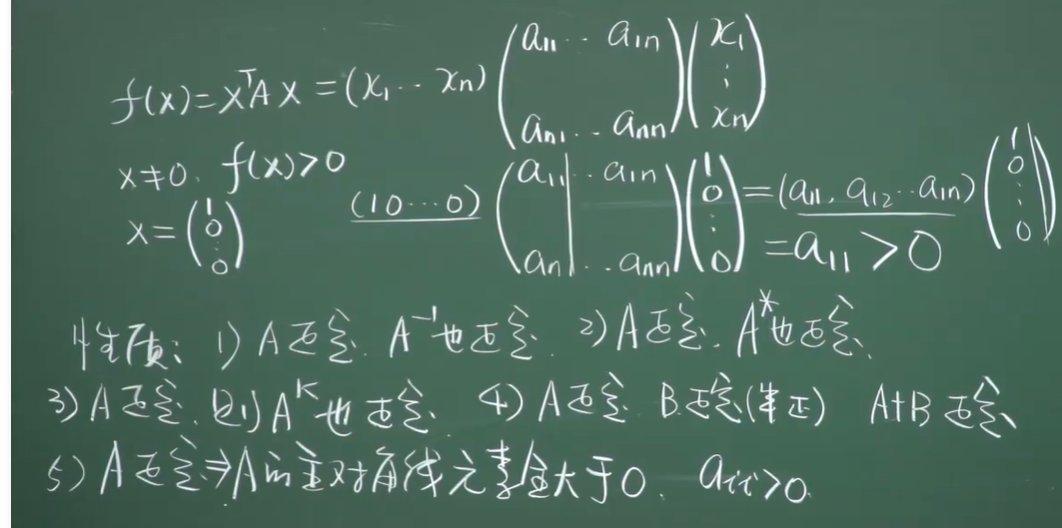 f(x)=xᵀAx=(x₁…xₙ)(a₁₁…a₁ₙ aₙ₁…aₙₙ)(x₁⋮xₙ)
x≠0、f(x)>0
x=(1 0⋮0) (1 0…0)(a₁₁…a₁ₙ aₙ₁…aₙₙ)(1 0⋮0)=(a₁₁, a₁₂…a₁ₙ)(1 0⋮0)
=a₁₁>0
性质：1) A正定. A⁻¹也正定. 2) A正定. A*也正定.
3) A正定. 则A^K也正定. 4) A正定. B正定(半正) A+B正定
5) A正定⇒A的主对角线元素全大于0. aᵢᵢ>0.